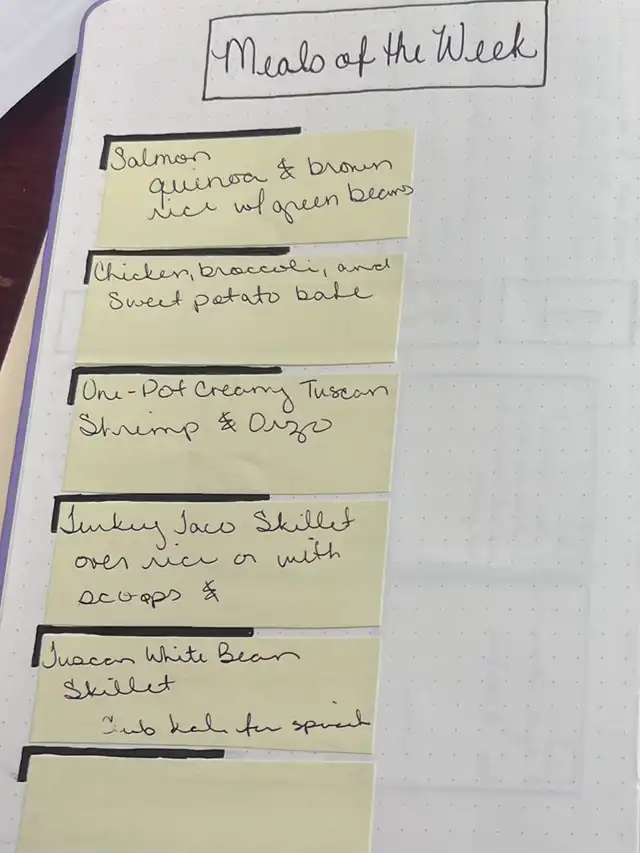 Meals of the Week
Salmon
quinoa & brown
rice w/ green beans
Chicken, broccoli, and
Sweet potato bake
One-Pot Creamy Tuscan
Shrimp & Orzo
Turkey Taco Skillet
over rice or with
scoops &
Tuscan White Bean
Skillet
Sub kale for spinach